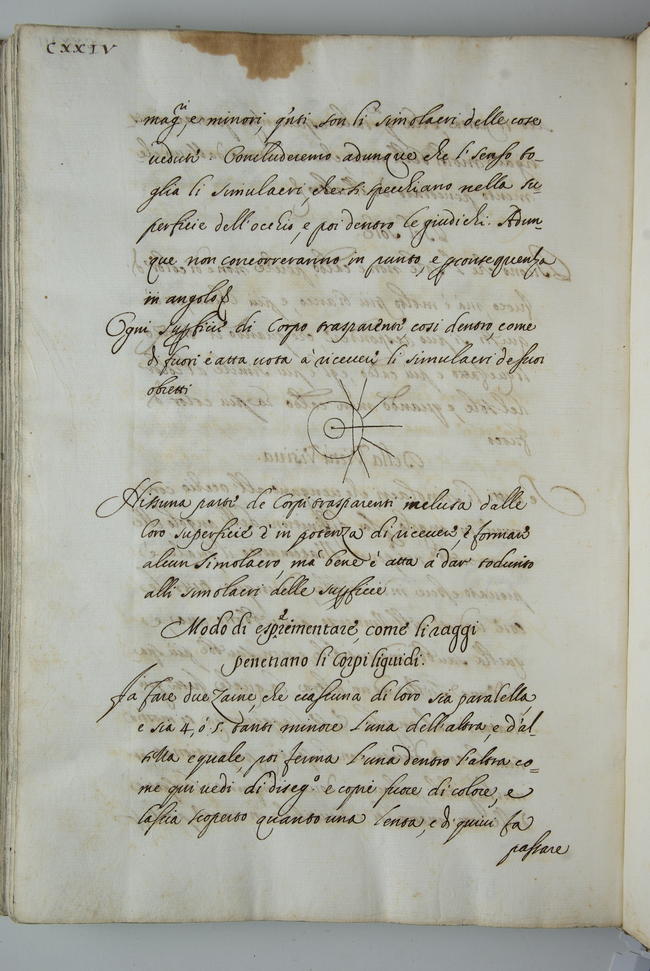 CXXIV
mag.ri e minori, q'nti son li simolacri delle cose
vedute. Concluderemo adunque che l'senso to-
glia li simulacri, che si specchiano nella su-
perficie dell'occhio, e poi dentro le giudichi. Adun-
que non concorreranno in punto, e p consequenza
in angolo
Ogni sup.ficie di Corpo trasparente cosi dentro, come
di fuori è atta nota à ricevere li simulacri de suoi
obietti
Nissuna parte de Corpi trasparenti inclusa dalle
loro superficie è in potenza di ricevere, è formare
alcun simolacro, ma bene è atta à dar
alli simolacri delle sup.ficie
Modo di esprementare, come li raggi
penetrano li Corpi liquidi.
Fa fare due Zaine, che ciascuna di loro sia paralella
e sia 4, ó 5. tanti minore l'una dell'altra, e d'al-
tezza equale, poi ferma l'una dentro l'altra co=
me qui vedi di diseg.o e copri fuore di colore, e
lascia scoperto quanto una lenta, e di quivi fa
passare